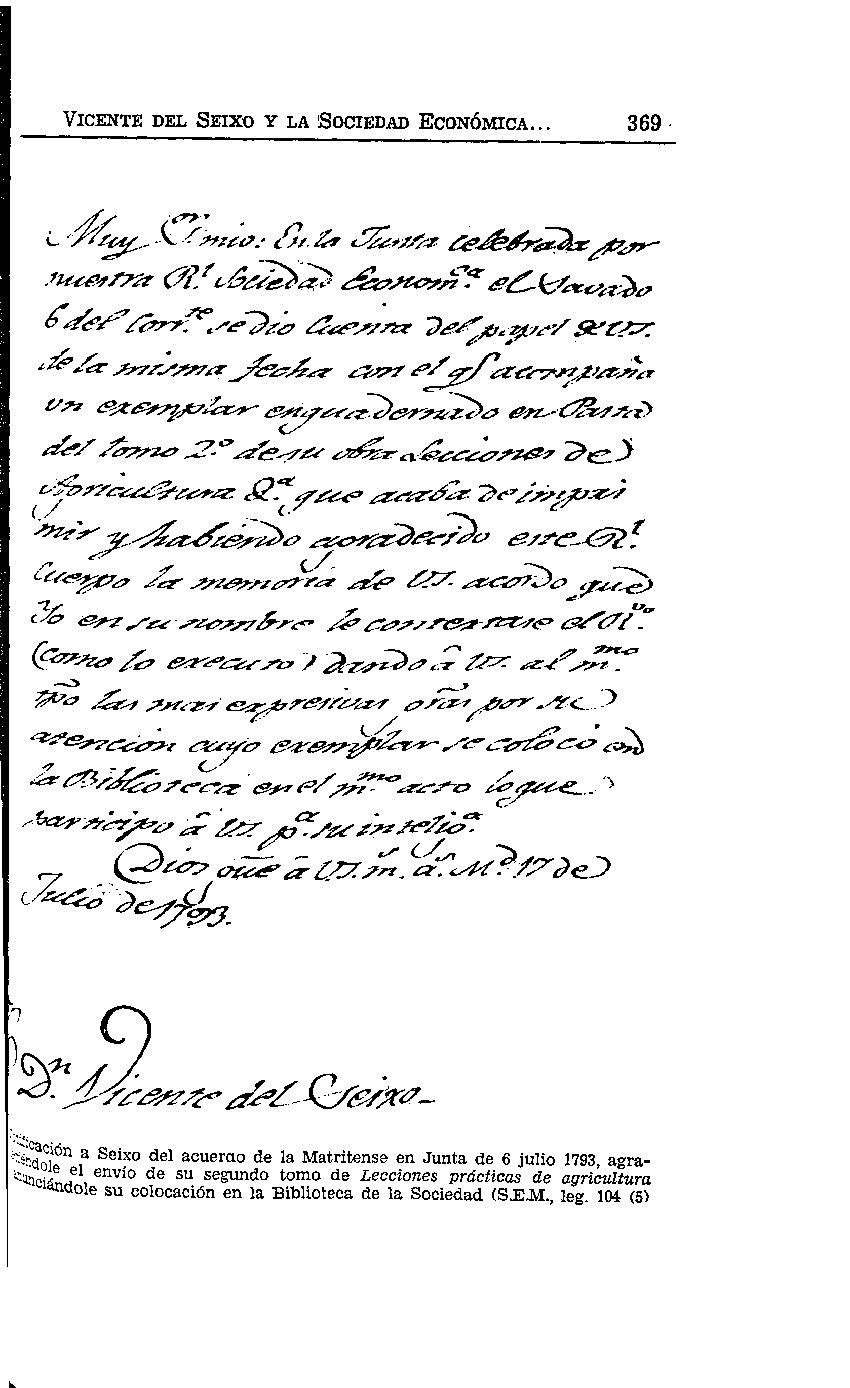 VICENTE DEL SEIXO Y LA SOCIEDAD ECONÓMICA... 369
Muy Sr. mio: En la Junta celebrada por
nuestra Rl. Sociedad Economca. el Savado
6 del Corrte. se dio Cuenta del papel de VS.
de la misma fecha con el q acompaña
un exemplar enquadernado en Pasta
del tomo 2.º de su obra Lecciones de
Agricultura &a. que acaba de impri
mir y habiendo agradecido este Rl.
Cuerpo la memoria de VS. acordo que
Yo en su nombre le contextase el
(como lo executo) dando â VS. al mmo.
tpo las mas expresivas gras por su
atención cuyo exemplar se colocó en
la Biblioteca en el mmo. acto lo que
participo â VS. pa. su inteliga.
Dios gue â VS. ms. as. Md. 17 de
Julio de 1793.
Dn. Vicente del Seixo-
a Seixo del acuerdo de la Matritense en Junta de 6 julio 1793, agra-
el envío de su segundo tomo de Lecciones prácticas de agricultura
su colocación en la Biblioteca de la Sociedad (S.E.M., leg. 104 (5)